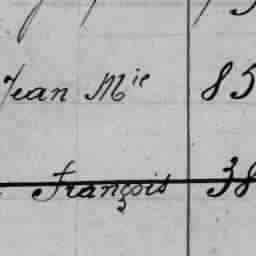 Jean M^ie 85
François 38